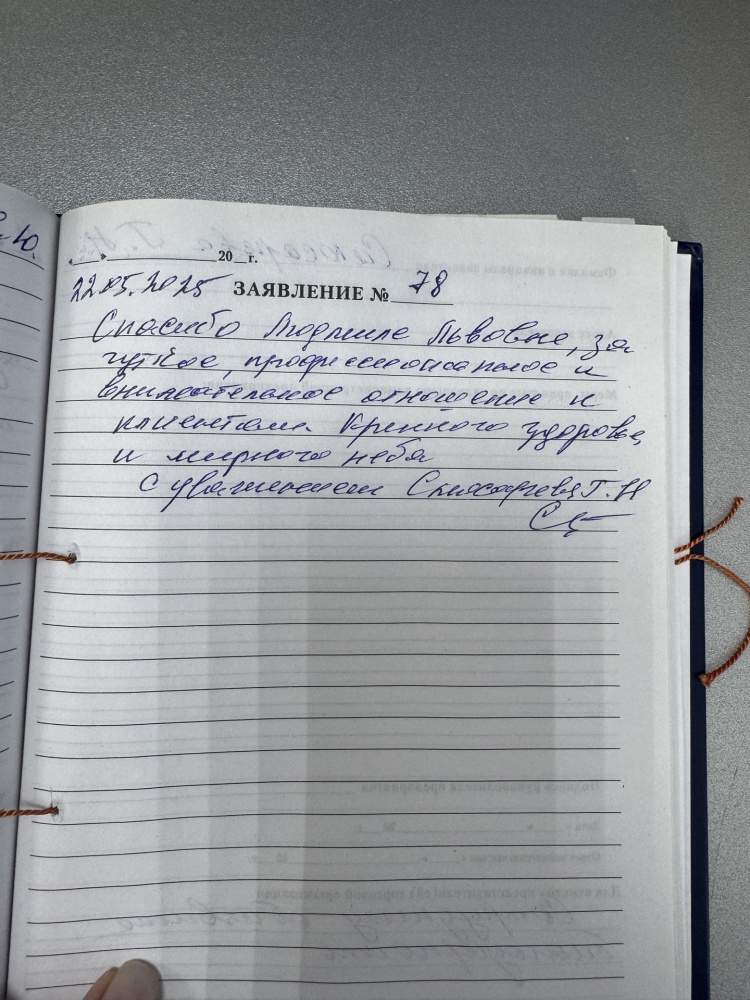 Ю.
« » 20 г.
22.05.2025 ЗАЯВЛЕНИЕ № 78
Спасибо Людмиле Львовне, за
чуткое, профессиональное и
внимательное отношение к
клиентам. Крепкого здоровья,
и мирного неба
С уважением Слюсарева Г. Н